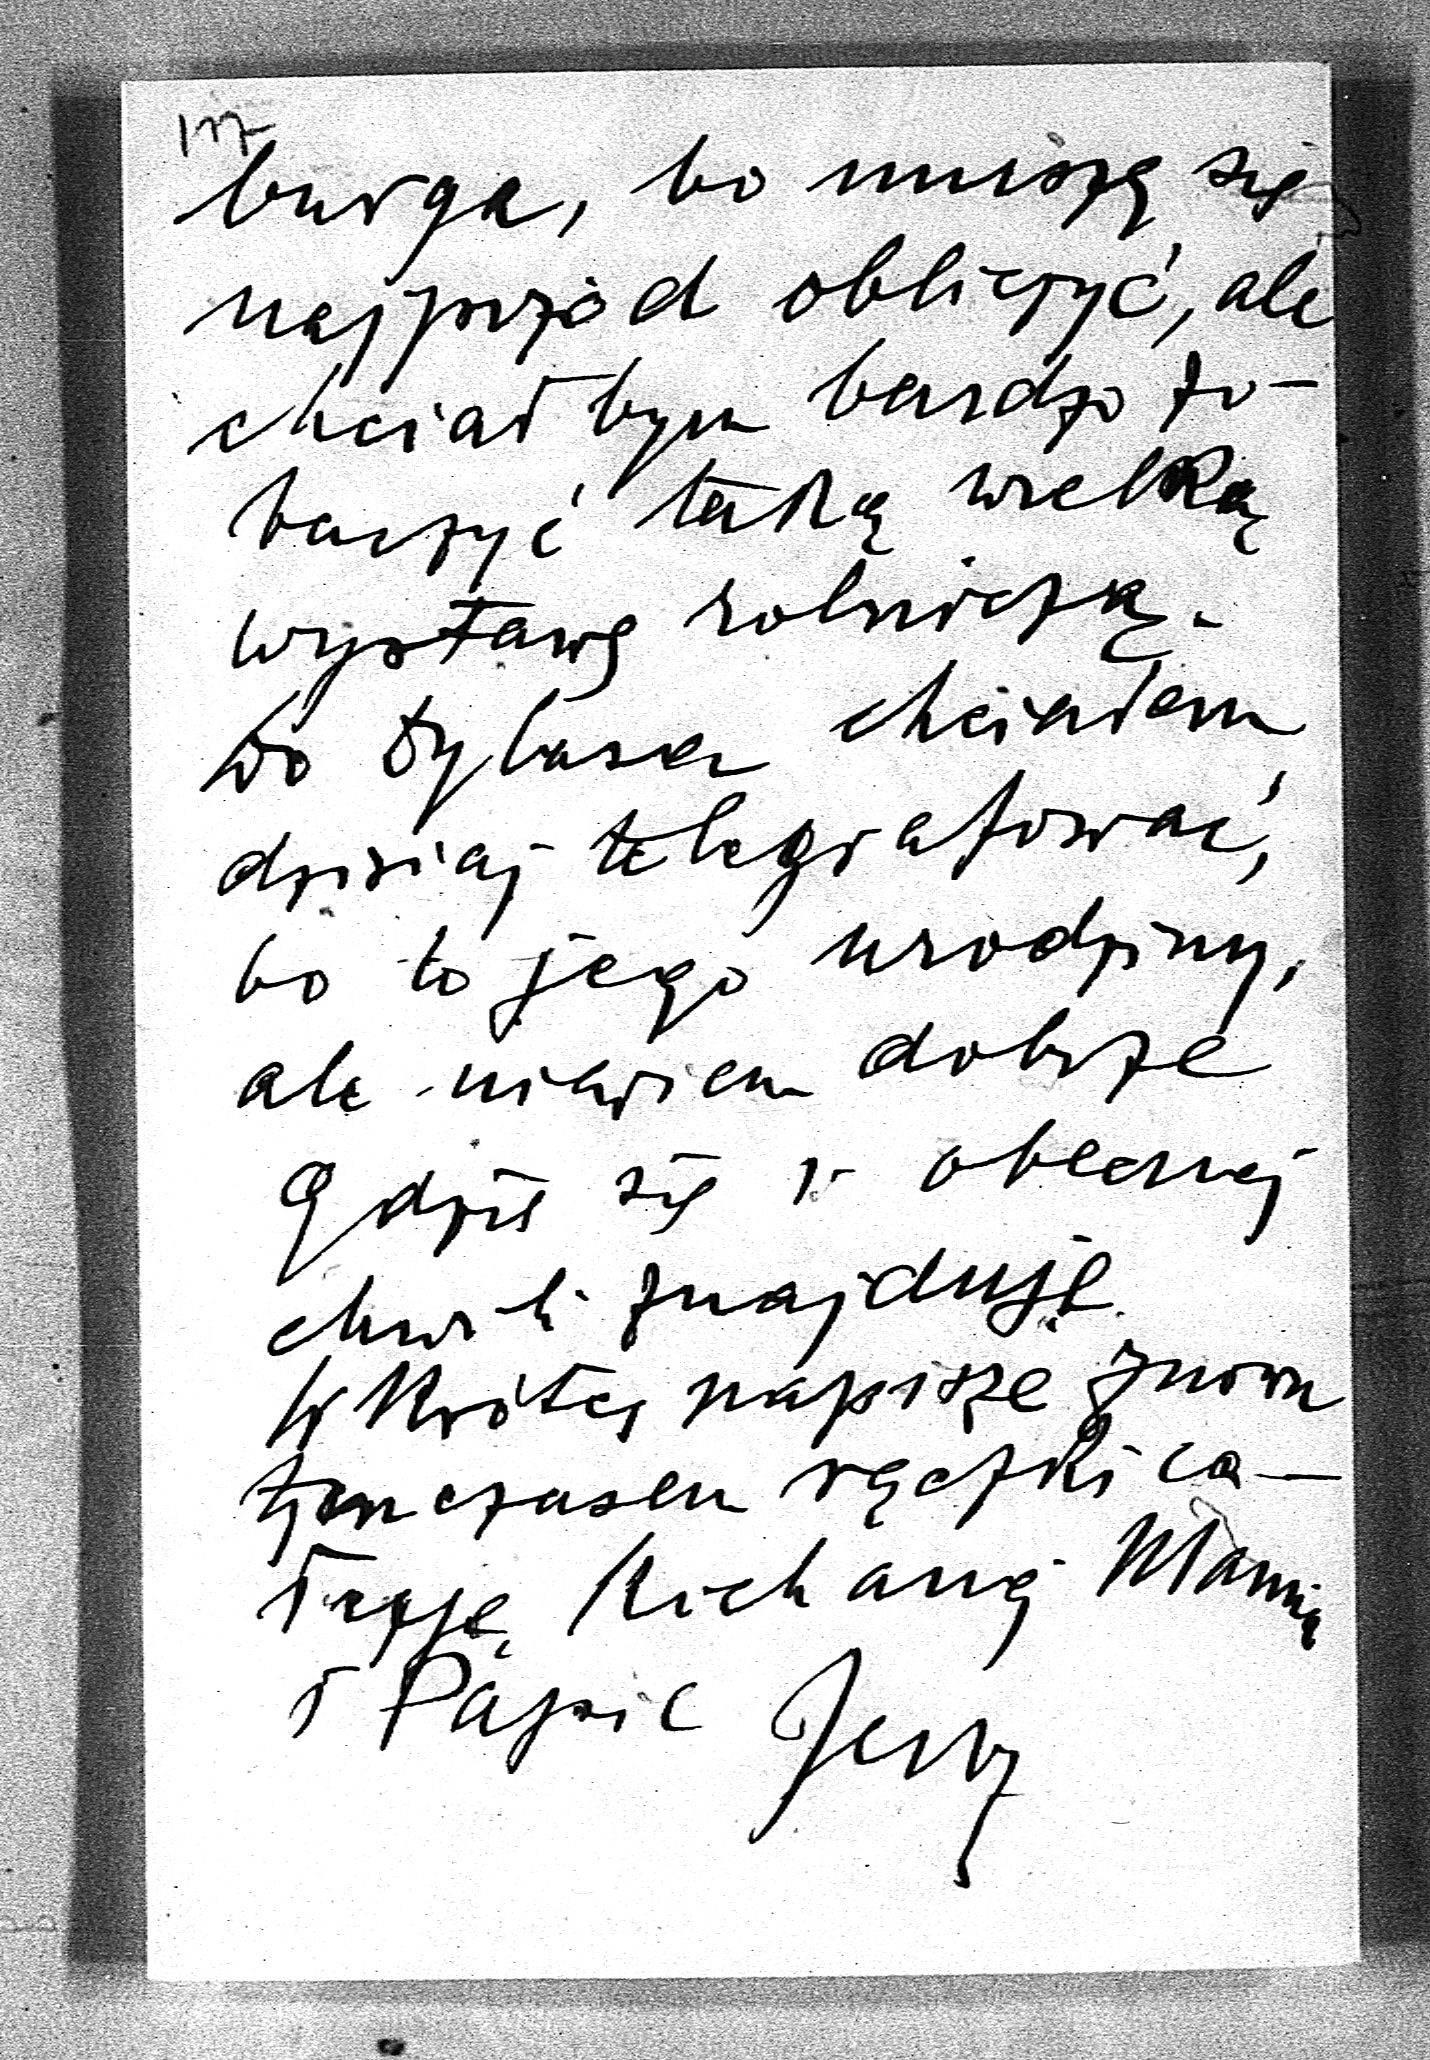 burga, bo muszę się
najprzód obliczyć, ale
chciałbym bardzo zo-
baczyć taką wielką
wystawę rolniczą.
Do chciałem
dzisiaj telegrafować,
bo to jego urodziny,
ale niewiem dobrze
gdzie się w obecnej
chwili znajduje.
Wkrótce napiszę znowu
tymczasem rączki ca-
łuję Kochanej Mamie
i Papie Jerzy